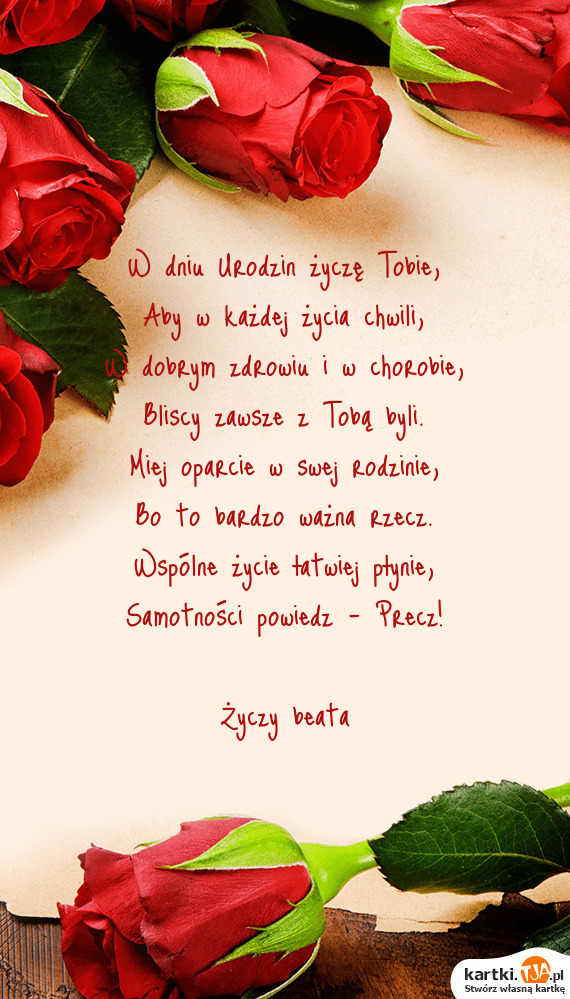 W dniu Urodzin życzę Tobie,
Aby w każdej życia chwili,
W dobrym zdrowiu i w chorobie,
Bliscy zawsze z Tobą byli.
Miej oparcie w swej rodzinie,
Bo to bardzo ważna rzecz.
Wspólne życie łatwiej płynie,
Samotności powiedz - Precz!
Życzy beata
kartki.TJA.pl
Stwórz własną kartkę